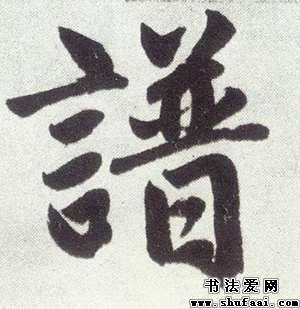 譜
书法爱网
www.shufaai.com